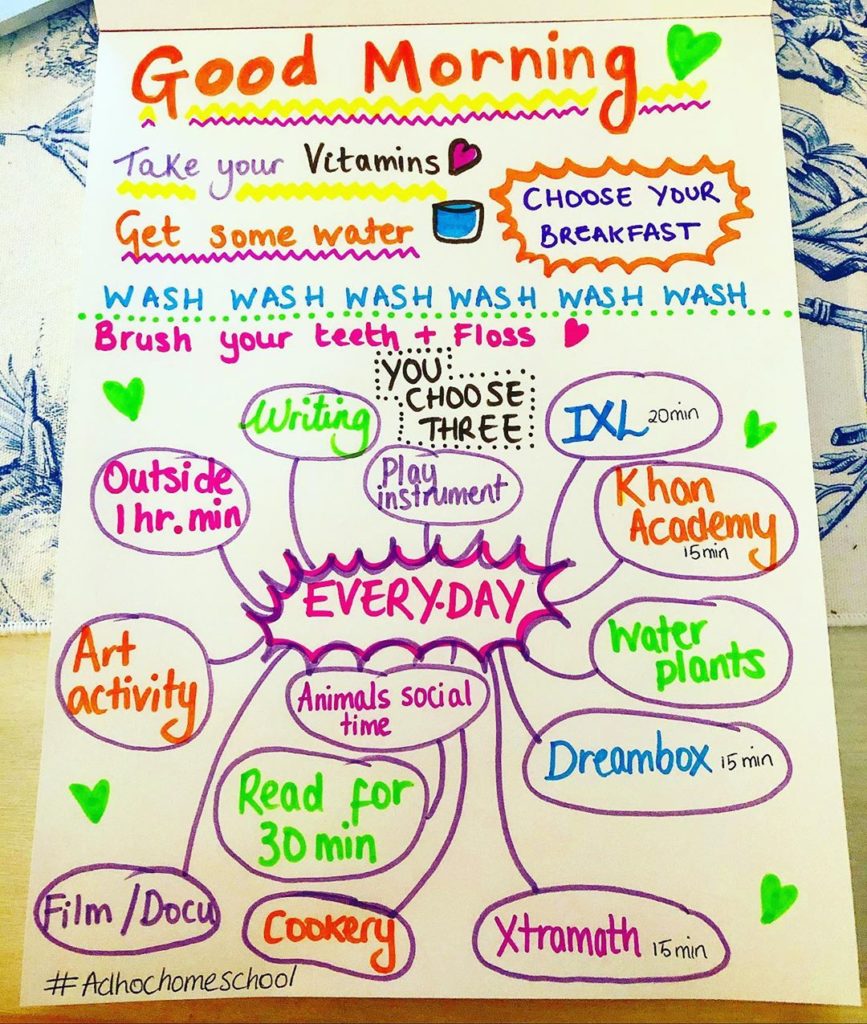 Good Morning
Take your Vitamins
Get some water
CHOOSE YOUR
BREAKFAST
WASH WASH WASH WASH WASH WASH
Brush your teeth + Floss
YOU
CHOOSE
THREE
Writing
IXL 20min
Play
instrument
Outside
1hr. min
Khan
Academy
15min
EVERY.DAY
Art
activity
Water
plants
Animals social
time
Dreambox 15min
Read for
30 min
Film/Docu
Cookery
Xtramath 15min
#Adhochomeschool